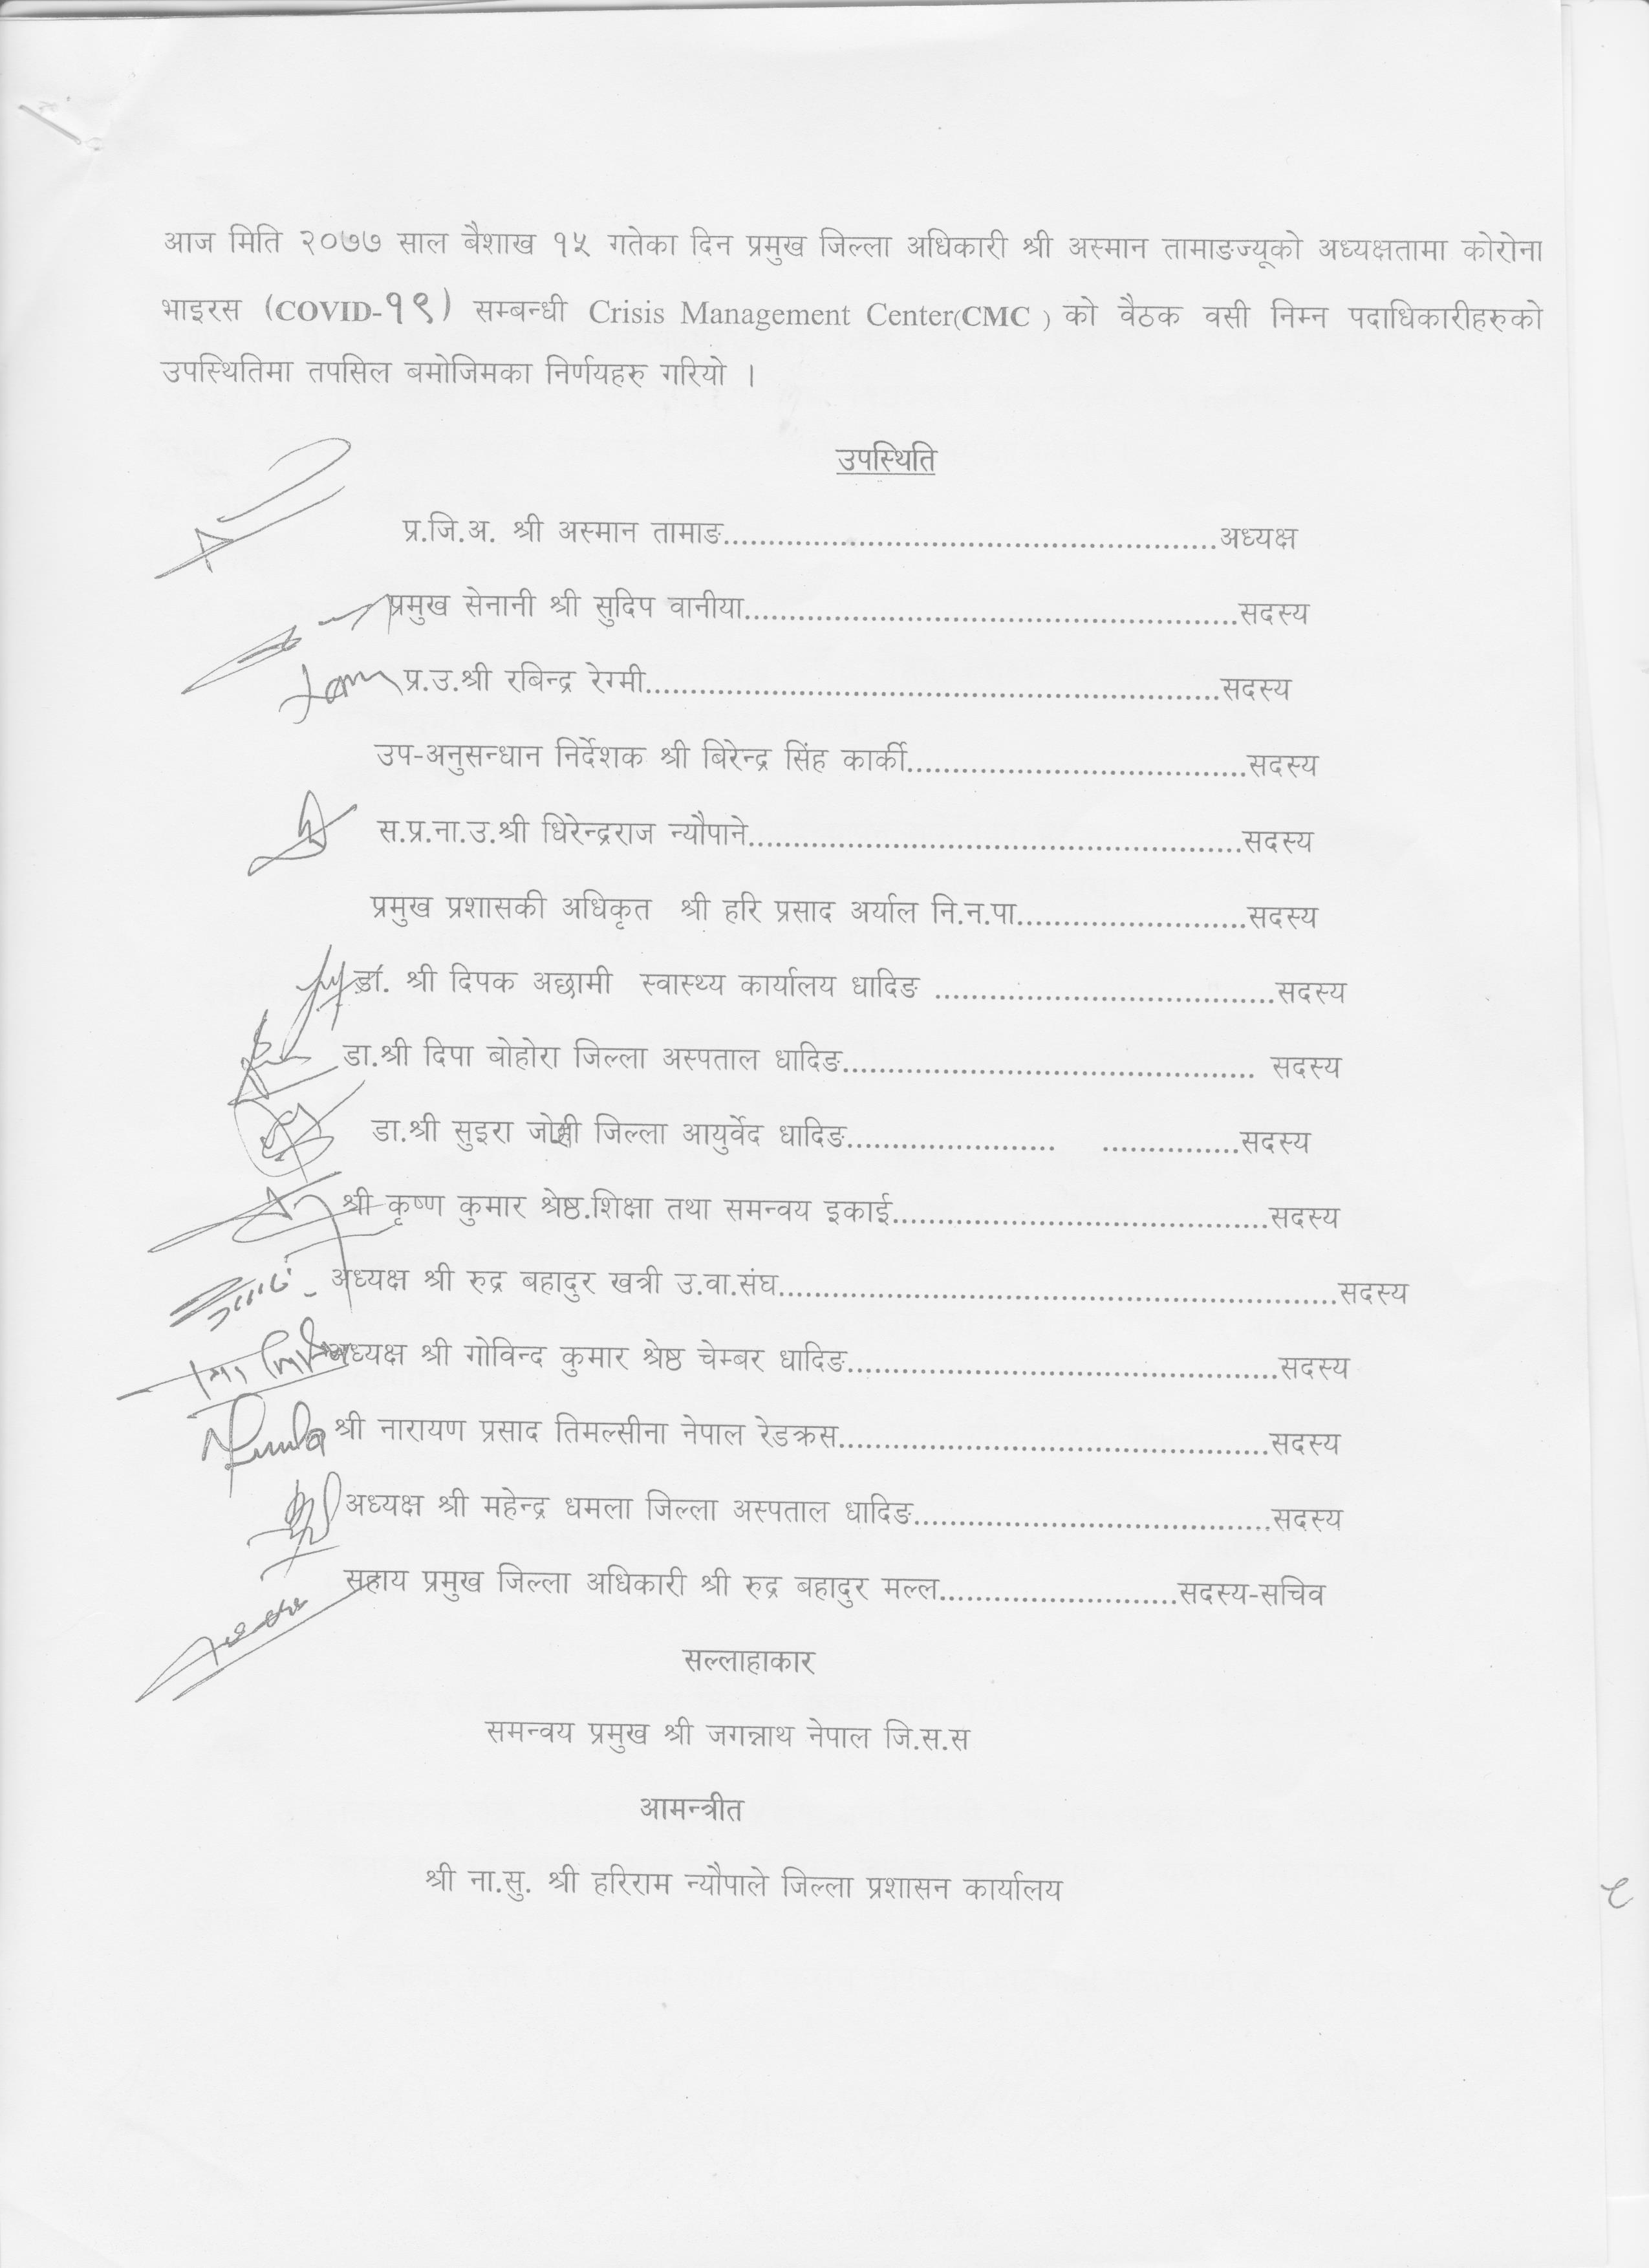 आज मिति २०७७ साल बैशाख १५ गतेका दिन प्रमुख जिल्ला अधिकारी श्री अस्मान तामाङज्यूको अध्यक्षतामा कोरोना
भाइरस (COVID-१९) सम्बन्धी Crisis Management Center(CMC ) को वैठक वसी निम्न पदाधिकारीहरुको
उपस्थितिमा तपसिल बमोजिमका निर्णयहरु गरियो ।
उपस्थिति
प्र.जि.अ. श्री अस्मान तामाङ......................................................अध्यक्ष
प्रमुख सेनानी श्री सुदिप वानीया......................................................सदस्य
प्र.उ.श्री रबिन्द्र रेग्मी...............................................................सदस्य
उप-अनुसन्धान निर्देशक श्री बिरेन्द्र सिंह कार्की.....................................सदस्य
स.प्र.ना.उ.श्री धिरेन्द्रराज न्यौपाने......................................................सदस्य
प्रमुख प्रशासकी अधिकृत श्री हरि प्रसाद अर्याल नि.न.पा.........................सदस्य
डा. श्री दिपक अछामी स्वास्थ्य कार्यालय धादिङ .....................................सदस्य
डा.श्री दिपा बोहोरा जिल्ला अस्पताल धादिङ............................................. सदस्य
डा.श्री सुइरा जोशी जिल्ला आयुर्वेद धादिङ....................... ...............सदस्य
श्री कृष्ण कुमार श्रेष्ठ.शिक्षा तथा समन्वय इकाई.........................................सदस्य
अध्यक्ष श्री रुद्र बहादुर खत्री उ.वा.संघ.............................................................सदस्य
अध्यक्ष श्री गोविन्द कुमार श्रेष्ठ चेम्बर धादिङ...............................................सदस्य
श्री नारायण प्रसाद तिमल्सीना नेपाल रेडक्रस...............................................सदस्य
अध्यक्ष श्री महेन्द्र धमला जिल्ला अस्पताल धादिङ.......................................सदस्य
सहाय प्रमुख जिल्ला अधिकारी श्री रुद्र बहादुर मल्ल..........................सदस्य-सचिव
सल्लाहाकार
समन्वय प्रमुख श्री जगन्नाथ नेपाल जि.स.स
आमन्त्रीत
श्री ना.सु. श्री हरिराम न्यौपाले जिल्ला प्रशासन कार्यालय